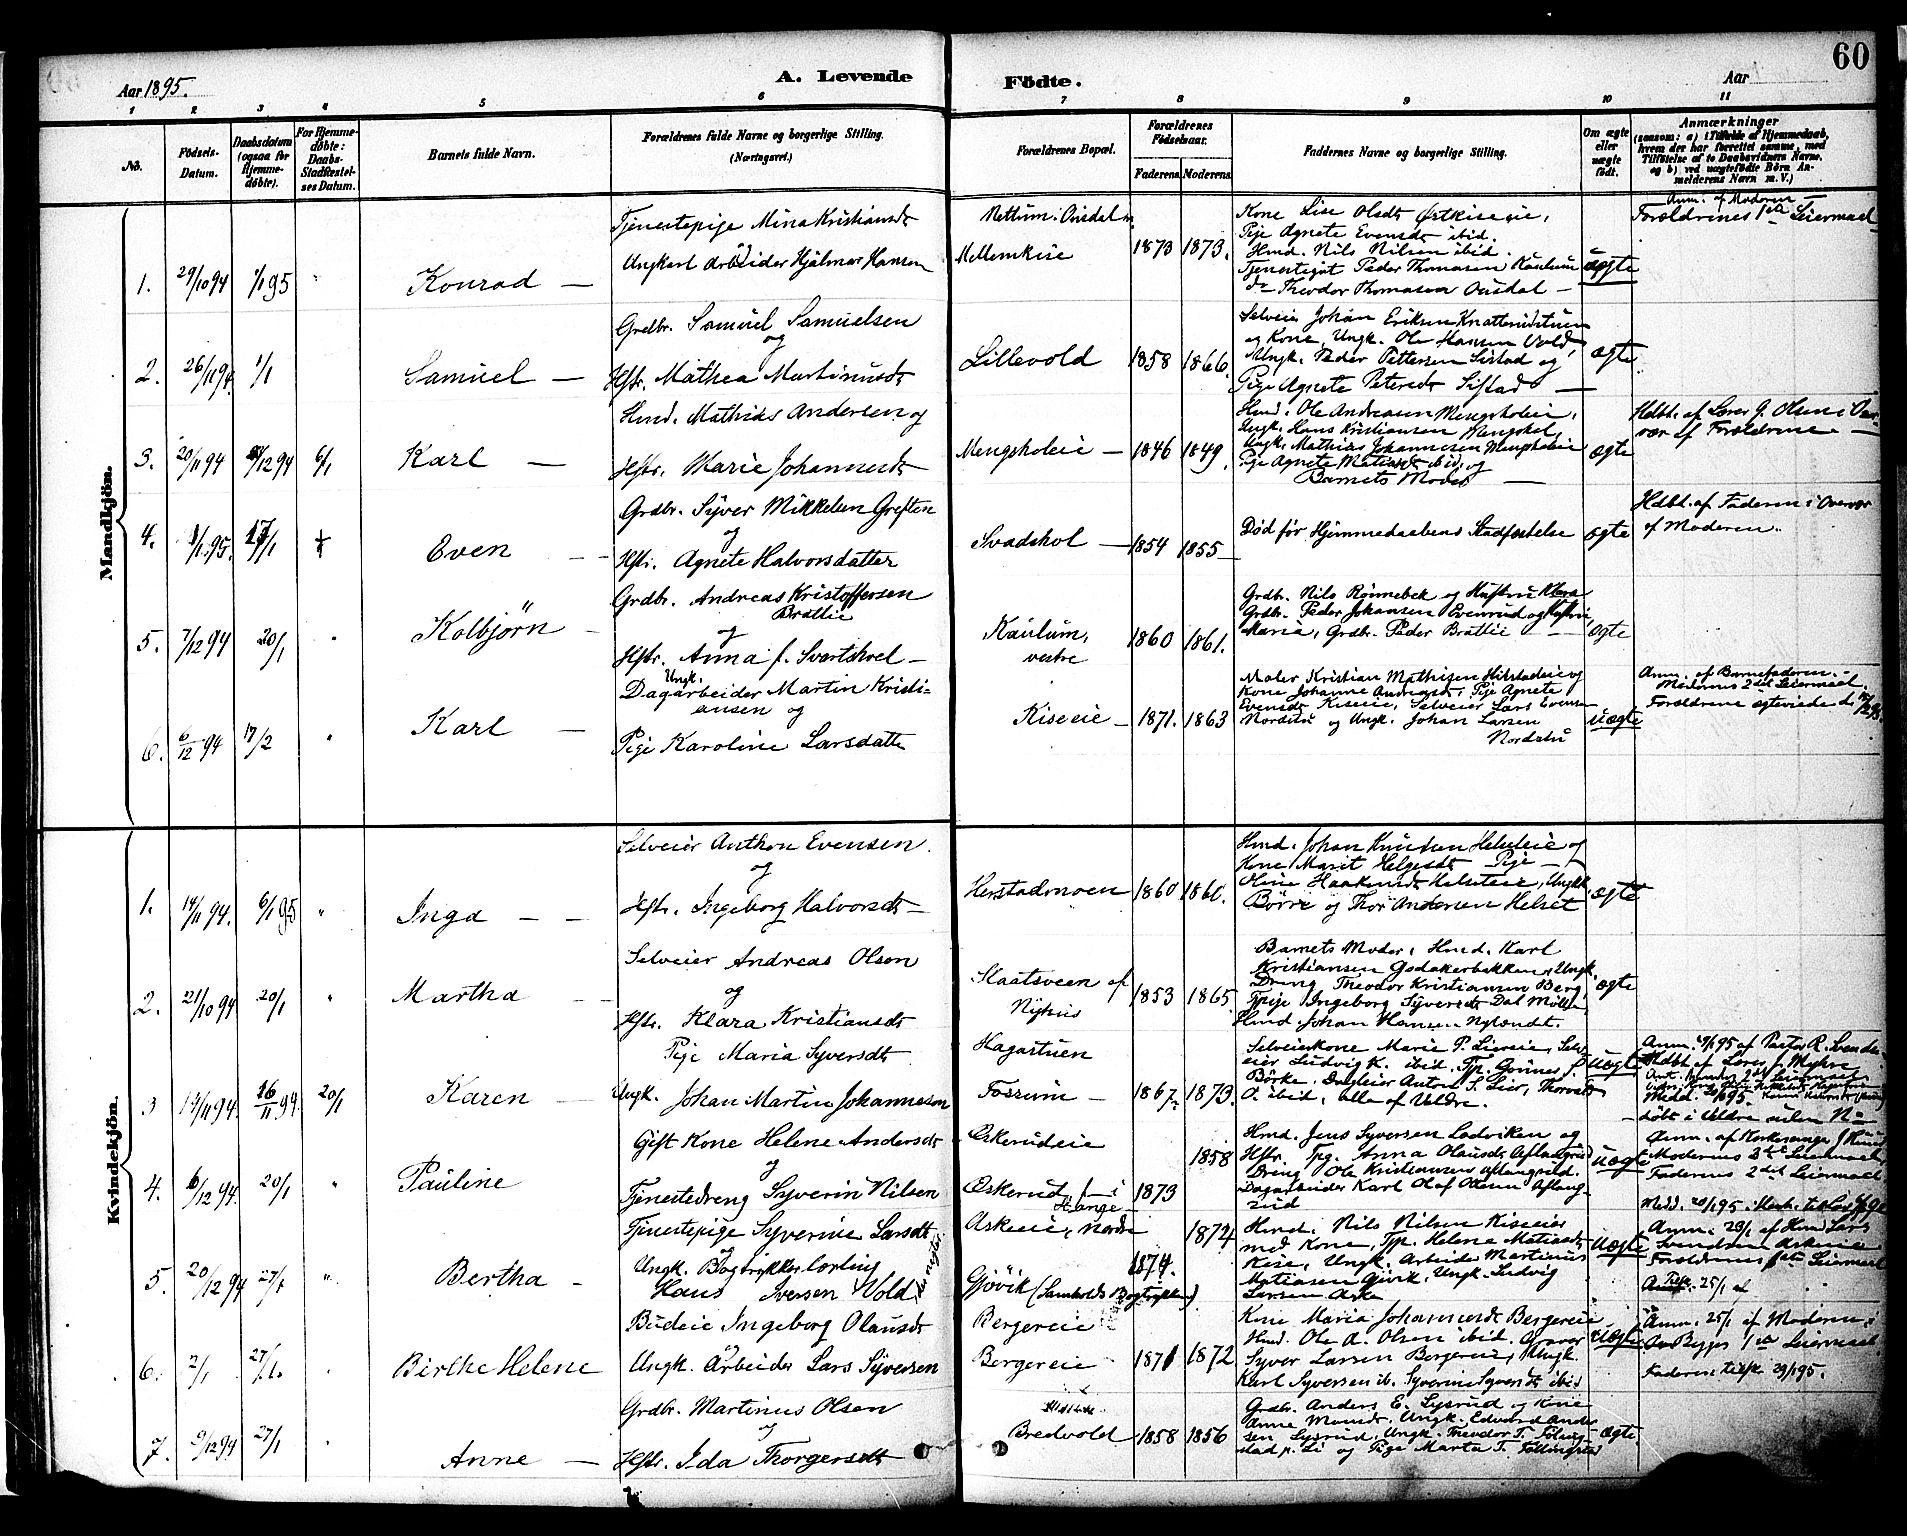 60
Aar 1895.
A. Levende Födte.
Aar
1 2 3 4 5 6 7 8 9 10 11
No.
Födsels-Datum.
Daabsdatum (ogsaa for Hjemmedöbte).
For Hjemmedöbte: Daabs-Stadfæstelses Datum.
Barnets fulde Navn.
Forældrenes fulde Navne og borgerlige Stilling. (Næringsvei.)
Forældrenes Bopæl.
Forældrenes Födselsaar.
Faderens. Moderens.
Faddernes Navne og borgerlige Stilling.
Om ægte eller uægte födt.
Anmærkninger
(saasom: a) i Tilfælde af Hjemmedaab, hvem der har forrettet samme, med Tilföielse af to Daabsvidners Navne, og b) ved uægtefödte Börn Anmelderens Navn m. V.)
Mandkjön.
1. 29/10 94 1/1 95 " Konrad —
Tjenestepige Mina Kristiansdt
Ungkarl Arbeider Hjalmar Hansen
Mellemkise 1873 1873.
Kone Lise Olsdt Østkiseeie,
Pige Agnete Evensdt ibid.
Hmd. Nils Nilsen ibid.
Tjenestegut Peder Thomasen Kaulum
do Theodor Thomasen Onsdal —
uægte
Anm. af Moderen
Forældrenes 1ste Leiermaal
2. 26/11 94. 1/1 Samuel —
Grdbr. Samuel Samuelsen
og
Hstr. Mathea Martinusdt
Lillevold 1858 1866.
Selveier Johan Eriksen Knatterudstuen
og Kone, Ungk. Ole Hansen Vold,
Ungk. Peder Pettersen Sistad og
Pige Agnete Petersdt Sistad —
ægte
3. 20/11 94 /12 94 6/1 Karl —
Hmd. Mathias Andersen og
Hstr. Marie Johannesdt
Mengsholeie — 1846 1849.
Hmd. Ole Andreasen Mengsholeie,
Ungk. Hans Kristiansen Mengshol,
Ungk. Mathias Johannesen Mengsholeie
Pige Agnete Matiasdt ibid, og
Barnets Moder —
ægte
Hdbt. af Lærer J. Olsen i Overvær af Forældrene —
4. /1 95. 17/1 † Even —
Grdbr. Syver Mikkelsen Greften
og
Hstr. Agnete Halvorsdatter
Svadshol — 1854 1855 —
Död för Hjemmedaabens Stadfæstelse
ægte
Hdbt. af Faderen i Overvær
af Moderen.
5. 7/12 94 20/1 " Kolbjörn —
Grdbr. Andreas Kristoffersen
Brattlie
og
Hstr. Anna f. Svartshol —
Kaulum, vestre 1860 1861.
Grdbr. Nils Rönnebek og Hustru Klara
Grdbr. Peder Johansen Evenrud og Hustru
Maria, Grdbr. Peder Brattlie —
ægte
6. 6/12 94 17/2 " Karl —
Ungk.
Dagarbeider Martin Kristiansen og
Pige Karoline Larsdatter
Kiseeie — 1871. 1863
Maler Kristian Mathisen
Kone Johanne Andreasdt, Pige Agnete
Evensdt Kiseeie, Selveier Lars Evensen
Nordstu og Ungk. Johan Larsen
Nordstu
uægte
Anm. af Barnefaderen. —
Moderens 2det Leiermaal.
Forældrene ægteviede d.
Kvindekjön.
1. 14/11 94. 6/1 95 " Inga — —
Selveier Anthon Evensen
og
Hstr. Ingeborg Halvorsdt —
Herstadmoen 1860 1860.
Hmd. Johan Knutsen Helseteie og
Kone Marit Helgesdt Pige —
Oline Haakensdt Helseteie, Ungk.
Börre og Thor Andersen Helset
ægte
2. 21/10 94 20/1 " Martha —
Selveier Andreas Olsen
og
Hstr. Klara Kristiansdt
Staatsveen af Nyhus 1853 1865.
Barnets Moder, Hmd. Karl
Kristiansen Godakerbakken, Ungk.
Dreng Theodor Kristiansen Berg,
Tpige Ingeborg Syversdt Dal Möllen
Hmd. Johan Hansen Nylændt.
ægte
3 13/11 94 26/11 94. 20/1 Karen —
Pige Maria Syversdt
Ungk. Johan Martin Johannesen
Hagastuen
Fossum — 1867. 1873.
Selveierkone Marie P. Liereie, Selveier Ludvig K. ibid. Tp.
Börke, Anton S. Lier, Thorvald
O. ibid, alle af Veldre.
uægte
döbt i Veldre uden No
4. 6/12 94. 20/1 " Pauline
Gift Kone Helene Andersdt
og
Tjenestedreng Syverin Nilsen
Æskerudeie
Æskerud 1873 1858
Hmd. Jens Syversen Ladviken og
Hstr. Tpg. Anna Olausdt Aflangrud
Dreng Ole Kristiansen Aflangrud.
Dagarbeider Karl Olaf Olsen Aflangrud
uægte
Moderens 3die Leiermaal
Faderens 2det Leiermaal
5. 20/12 94 27/1 " Bertha —
Tjenestepige Syverine Larsdt
og
Ungk. Bogtrykkerlærling
Hans Iversen Vold
Askeeie, nordre
Gjövik (Samholds Bogtrykkeri) 1874. 1874
Hmd. Nils Nilsen Kiseeier
med Kone, Tp. Helene Matiasdt
Kise, Ungk. Arbeider Martinus
Matiasen Gjövik, Ungk. Ludvig
Larsen Aske
uægte
Anm. 23/1 af Hmd Lars
Svendsen Askeeie
Forældrenes 1ste Leiermaal
6. 2/1 27/1. " Birthe Helene
Budeie Ingeborg Olausdt
og
Ungk. Arbeider Lars Syversen
Bergereie
Bergereie 1871 1872
Kone Maria Johannesdt Bergereie
Hmd. Ole A. Olsen ibid. Gravar
Syver Larsen Bergereie, Ungk.
Karl Syversen ib. Syverine Syversdt ibid
uægte
Anm. 25/1 af Moderen.
Begges 1ste Leiermaal.
7. 9/12 94 27/1 " Anne —
Grdbr. Martinus Olsen
og
Hstr. Ida Thorgersdt
Bredvold 1858 1856
Grdbr. Anders E. Lysrud og Kone
Anne Monsdt. Ungk. Edvard Andersen Lysrud, Ungk. Theodor T.
og Pige Marta T.
ægte.